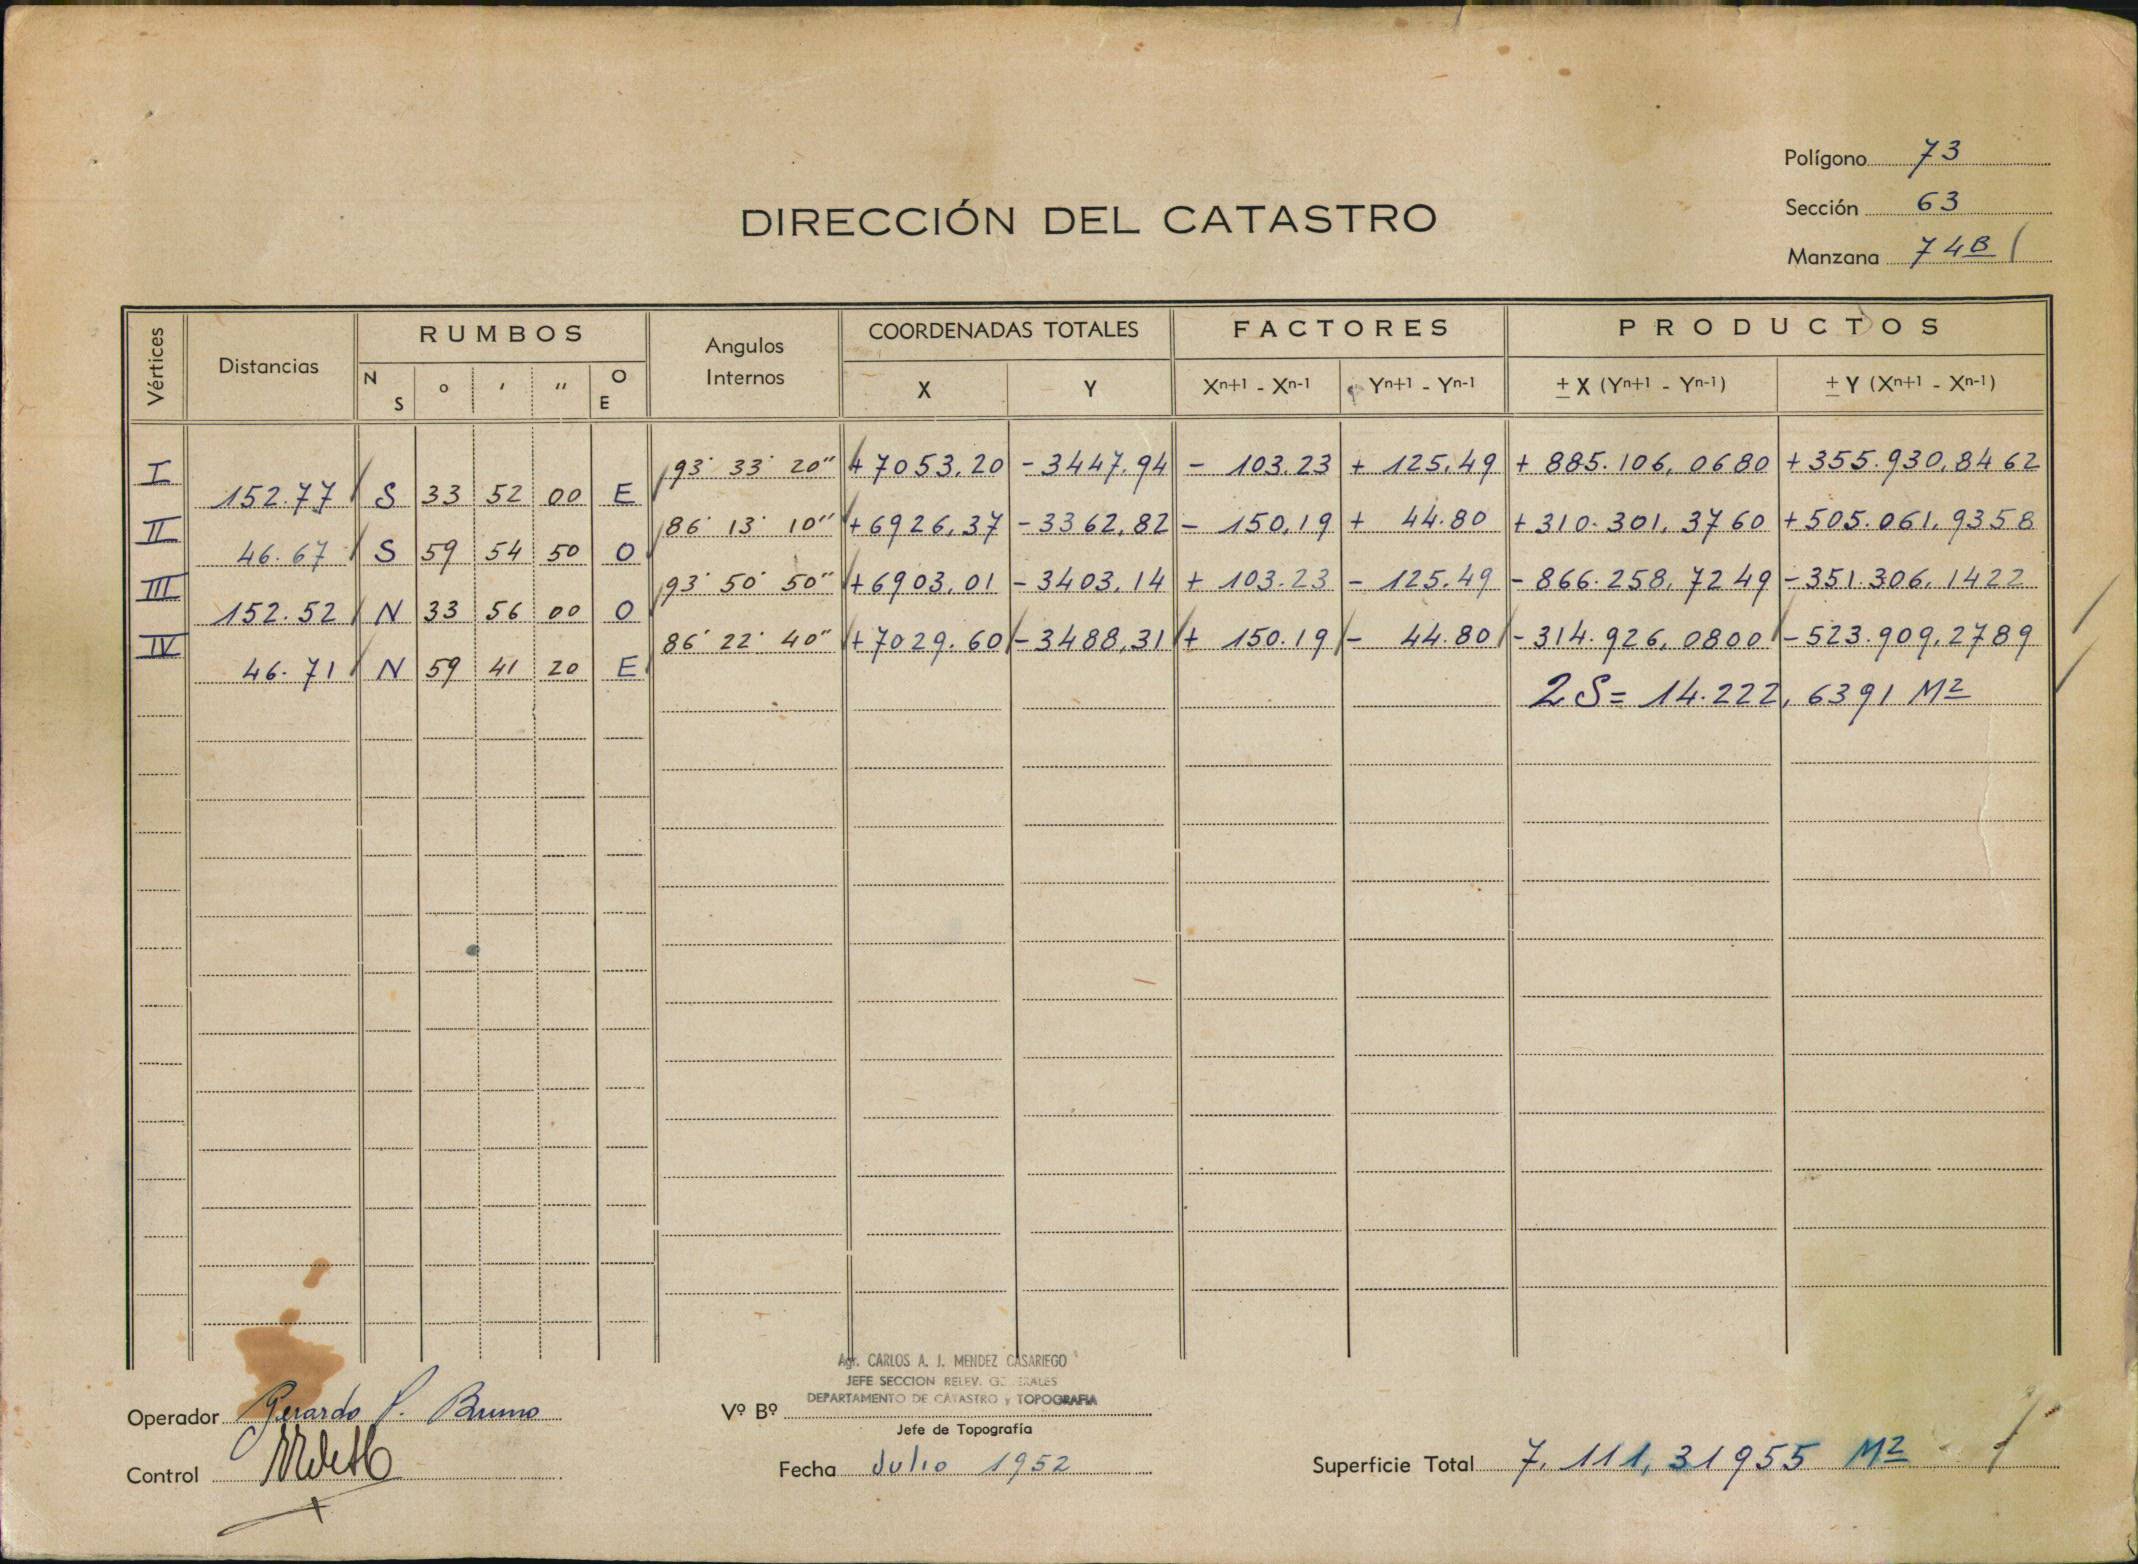 Polígono 73
Sección 63
Manzana 74B
DIRECCIÓN DEL CATASTRO
Vértices Distancias RUMBOS N S ° ' " O E Angulos Internos COORDENADAS TOTALES X Y FACTORES Xn+1 - Xn-1 Yn+1 - Yn-1 PRODUCTOS ± X (Yn+1 - Yn-1) ± Y (Xn+1 - Xn-1)
I 93° 33' 20" +7053.20 -3447.94 - 103.23 + 125.49 + 885.106,0680 +355.930,8462
152.77 S 33 52 00 E
II 86° 13' 10" +6926,37 -3362,82 - 150,19 + 44.80 +310.301,3760 +505.061,9358
46.67 S 59 54 50 O
III 93° 50' 50" +6903,01 -3403,14 + 103.23 - 125.49 -866.258,7249 -351.306,1422
152.52 N 33 56 00 O
IV 86° 22' 40" +7029.60 -3488,31 + 150.19 - 44.80 -314.926,0800 -523.909,2789
46.71 N 59 41 20 E
2S = 14.222,6391 M2
Agr. CARLOS A. J. MENDEZ CASARIEGO
JEFE SECCION RELEV. GENERALES
DEPARTAMENTO DE CATASTRO y TOPOGRAFIA
Operador Gerardo P. Bruno
Vº Bº
Jefe de Topografía
Control
Fecha Julio 1952
Superficie Total 7.111,31955 M2